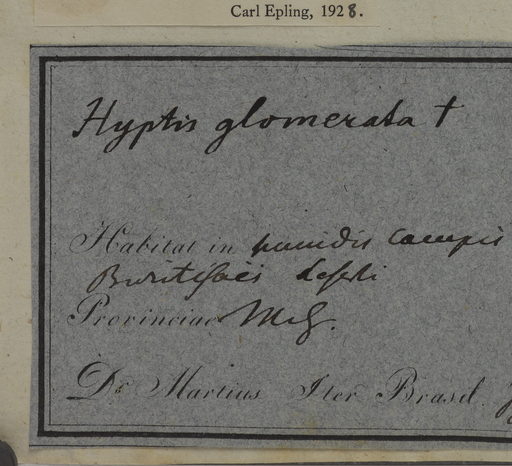 Carl Epling, 1928.
Hyptis glomerata †
Habitat in humidis campis
deserti
Provinciae M. G.
Dr Martius Iter Brasil.